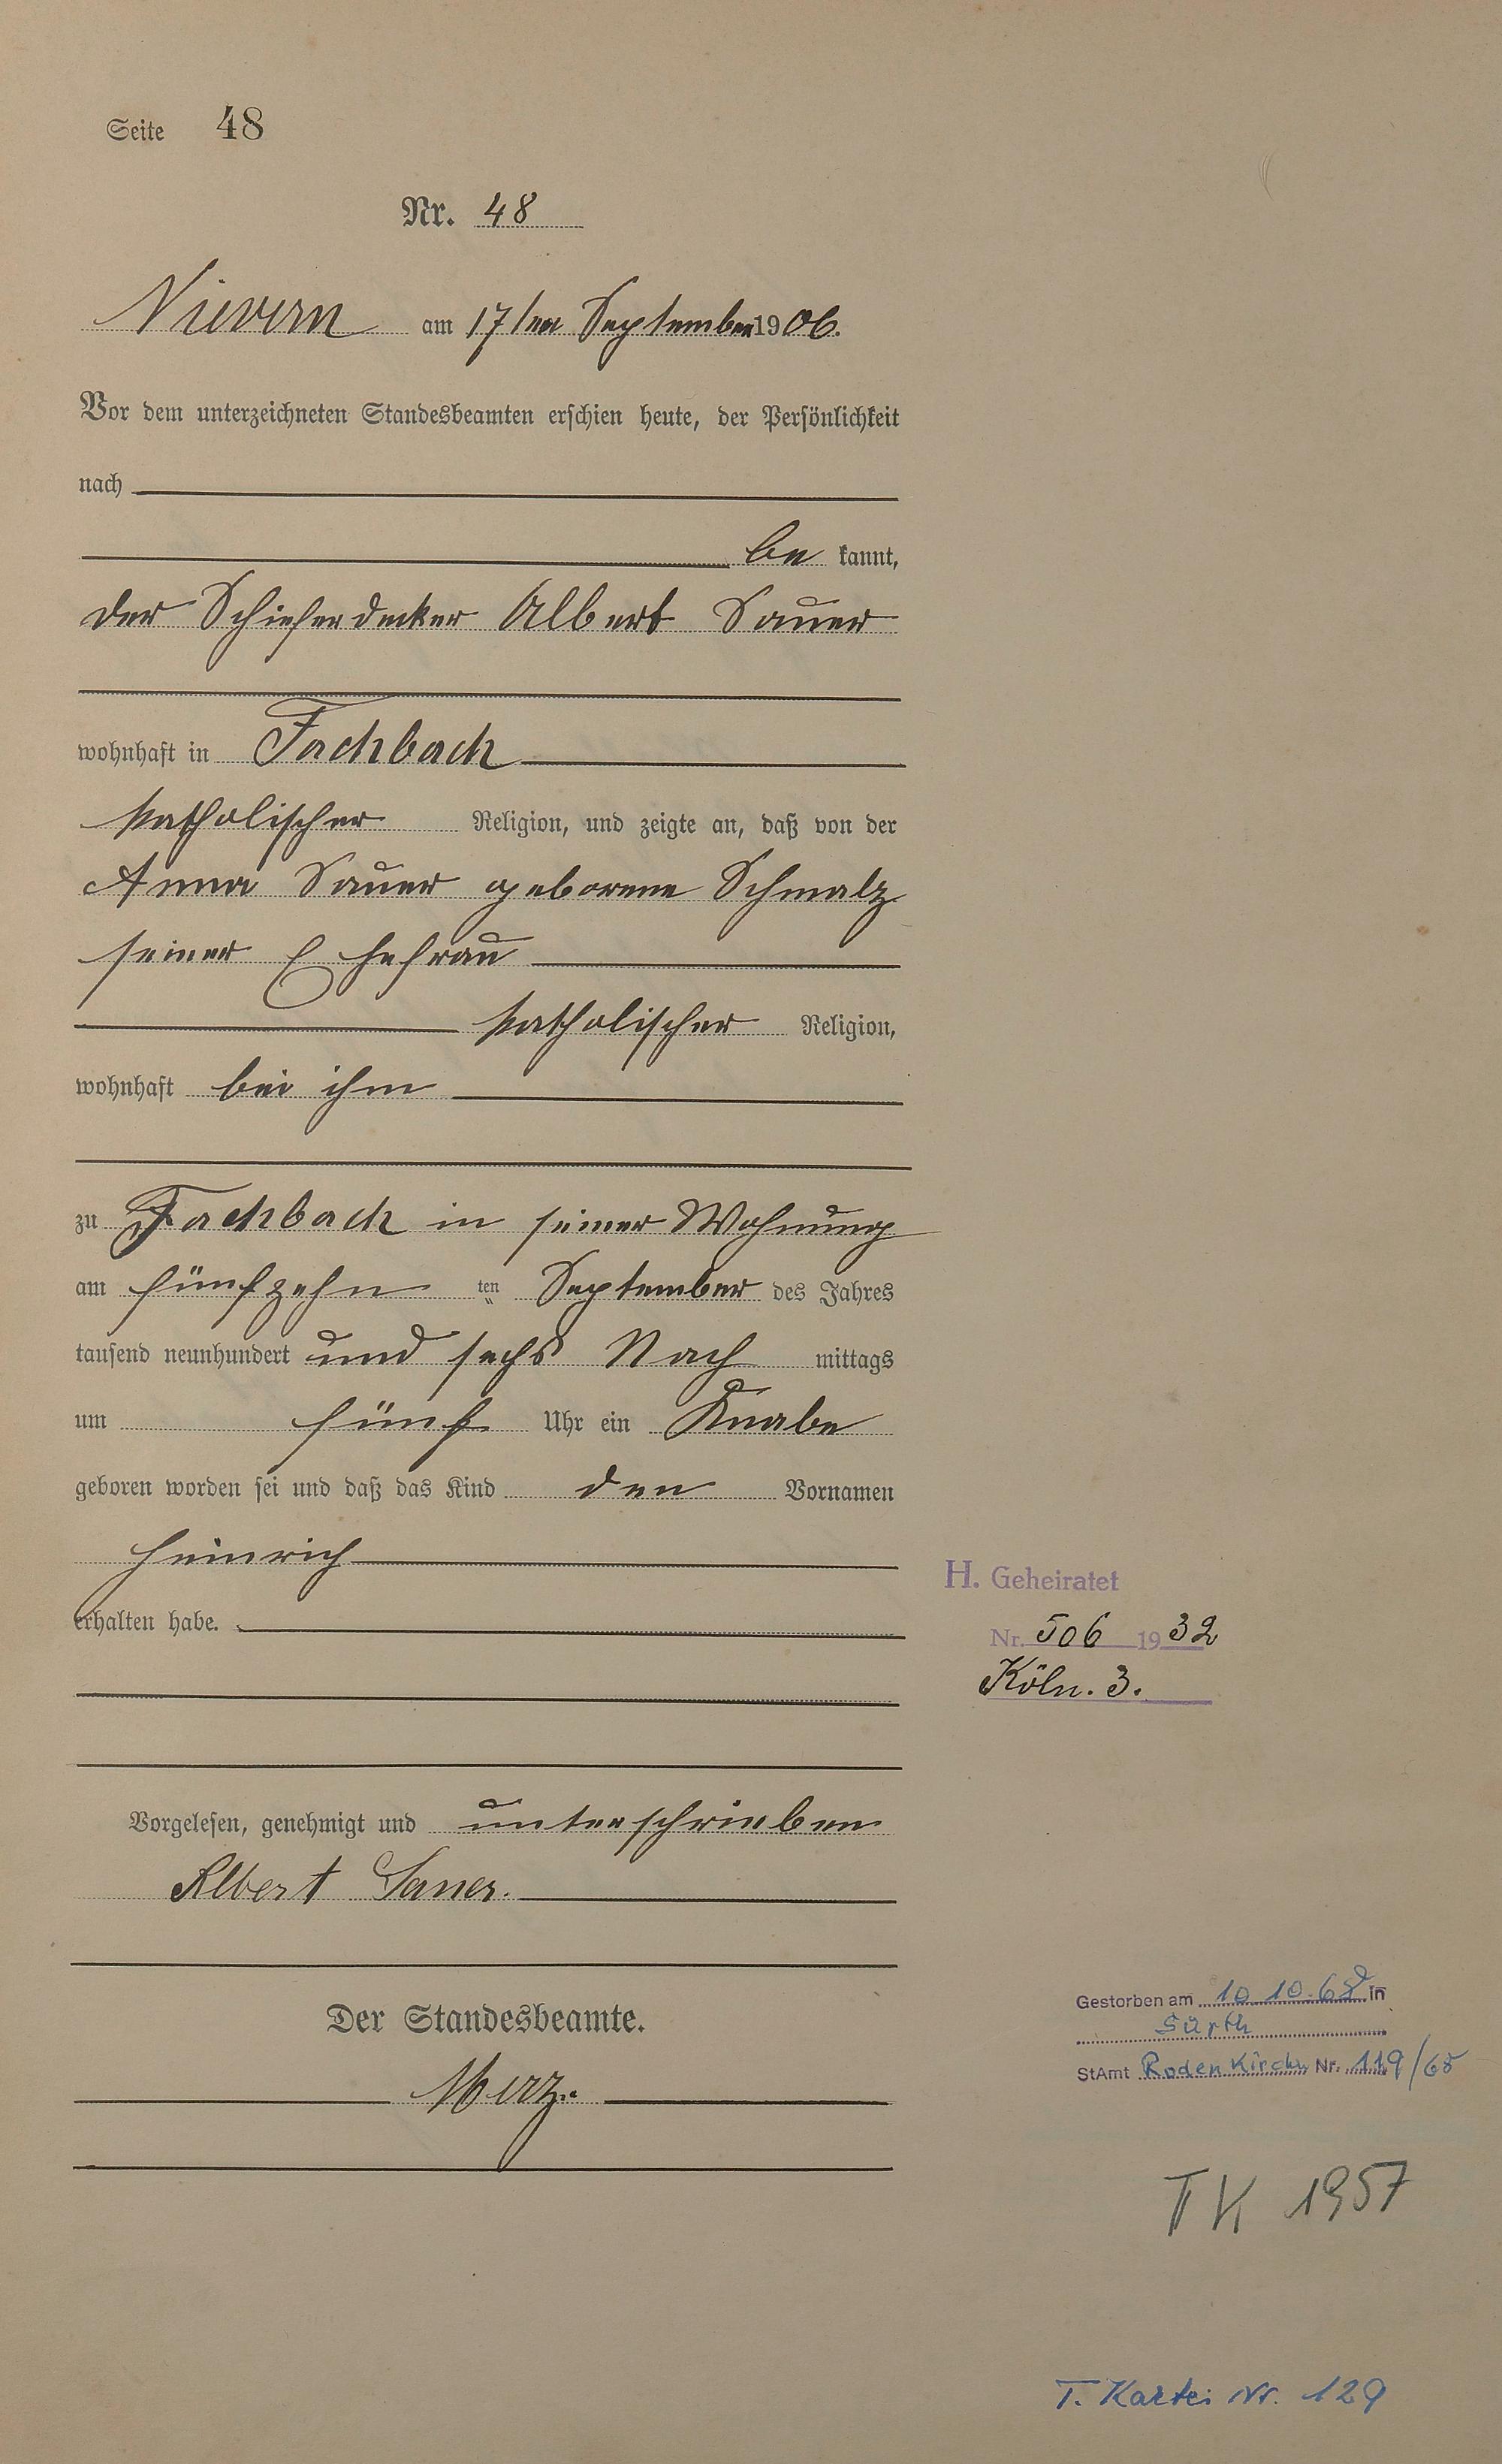 Seite 48
Nr. 48
Nievern am 17ten September 1906.
Vor dem unterzeichneten Standesbeamten erschien heute, der Persönlichkeit
nach
be kannt,
der Schieferdecker Albert Sauer
wohnhaft in Fachbach
katholischer Religion, und zeigte an, daß von der
Anna Sauer geborene Schmalz
seiner Ehefrau
katholischer Religion,
wohnhaft bei ihm
zu Fachbach in seiner Wohnung
am fünfzehn ten September des Jahres
tausend neunhundert und sechs Nach mittags
um fünf Uhr ein Knabe
geboren worden sei und daß das Kind den Vornamen
Heinrich
erhalten habe.
H. Geheiratet
Nr. 506 1932
Köln. 3.
Vorgelesen, genehmigt und unterschrieben
Albert Sauer.
Der Standesbeamte.
Merz.
Gestorben am 10.10.68 in
Sürth
StAmt Rodenkirchen Nr. 119/68
TK 1957
T. Kartei Nr. 129